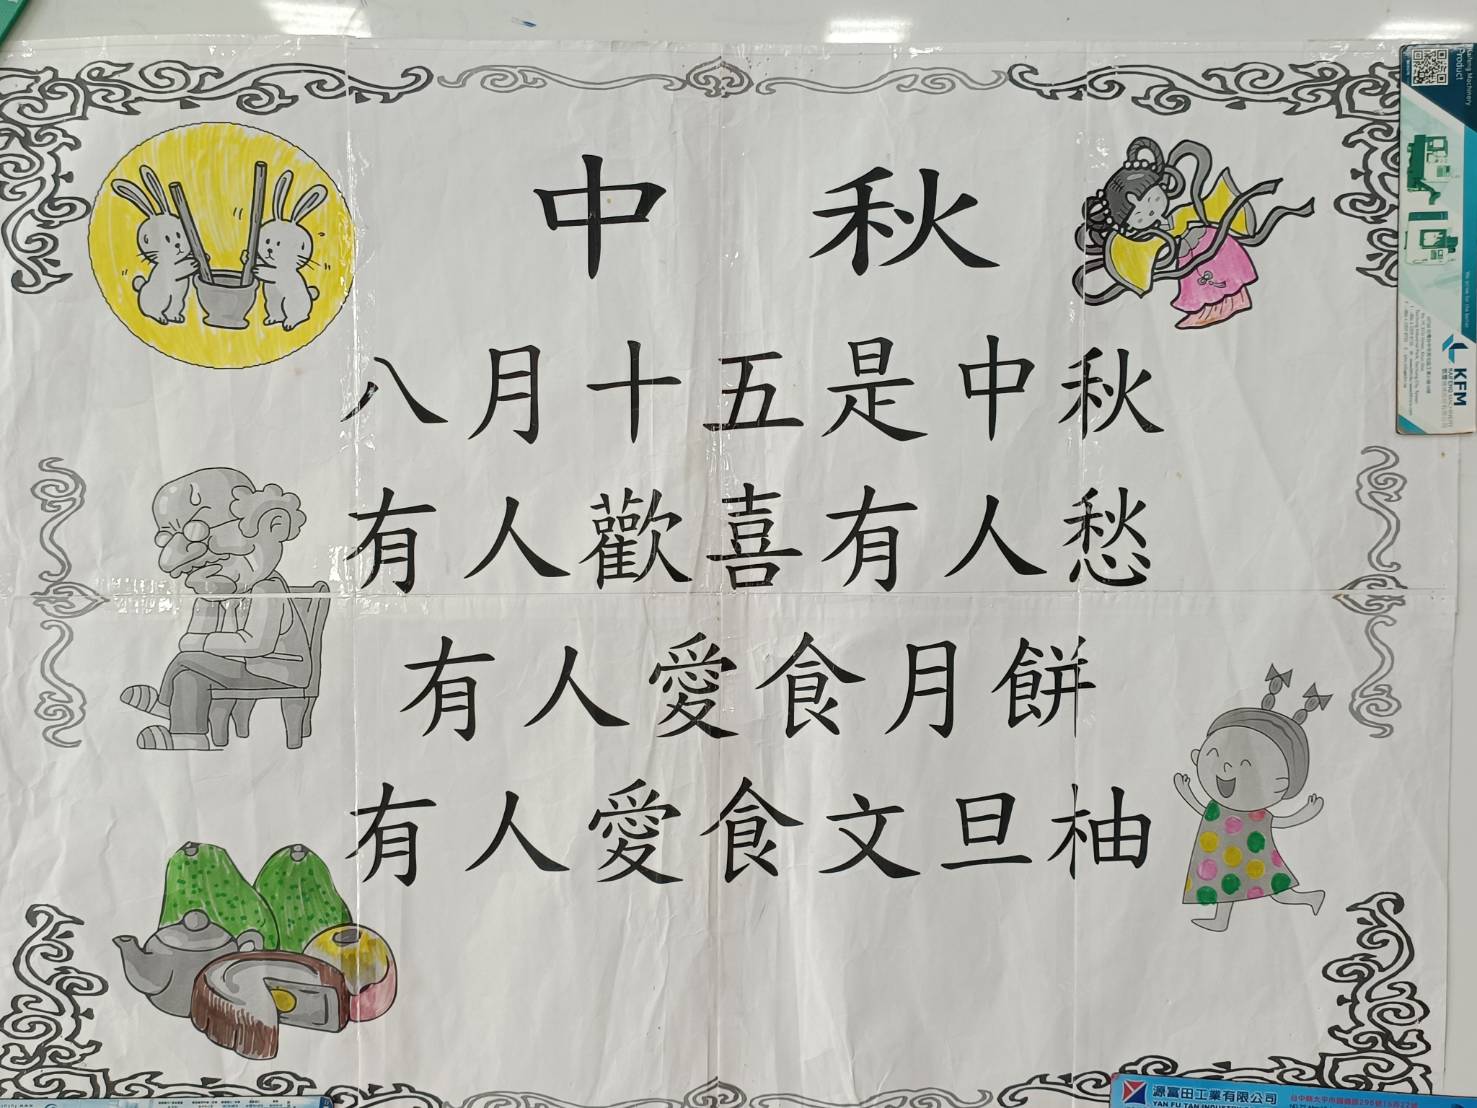 中 秋
八月十五是中秋
有人歡喜有人愁
有人愛食月餅
有人愛食文旦柚
Product
KFM
源富田工業有限公司